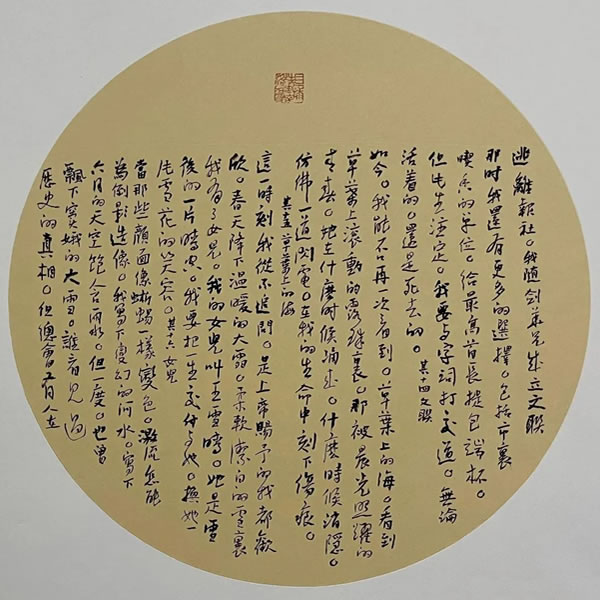 逃離報社。我随劍先生文聯
那时我還有更多的選擇。包括市裏
喫香的单位。给最高首長提包端杯。
但此生注定。我要与字詞打交道。無論
活着的。還是死去的。其十四文聯
如今。我能否再一次看到。草葉上的海。看到
草葉上滚動的露珠裏。那被晨光照耀的
青春。她在什麼时候涌来。什麼時候消隱。
仿佛一道闪電。在我的生命中刻下傷痕。
其十五草葉上的海
這一時刻我從不追問。是上帝賜予的我都歡
欣。春天降下温暖的大雪。柔軟潔白的雪裏
我有了女兒。我的女兒叫王雪晴。她是雪
後的一片晴空。我要把一生交付与她。換她一
生雪花的笑容。其十六女兒
當那些顔面像蜥蜴一樣變色。激流怎能
為倒影造像。我寫下變幻的河水。寫下
六月的天空飽含雨水。但一度。也曾
飄下竇娥的大雪。誰看見過
歷史的真相。但總會有人在